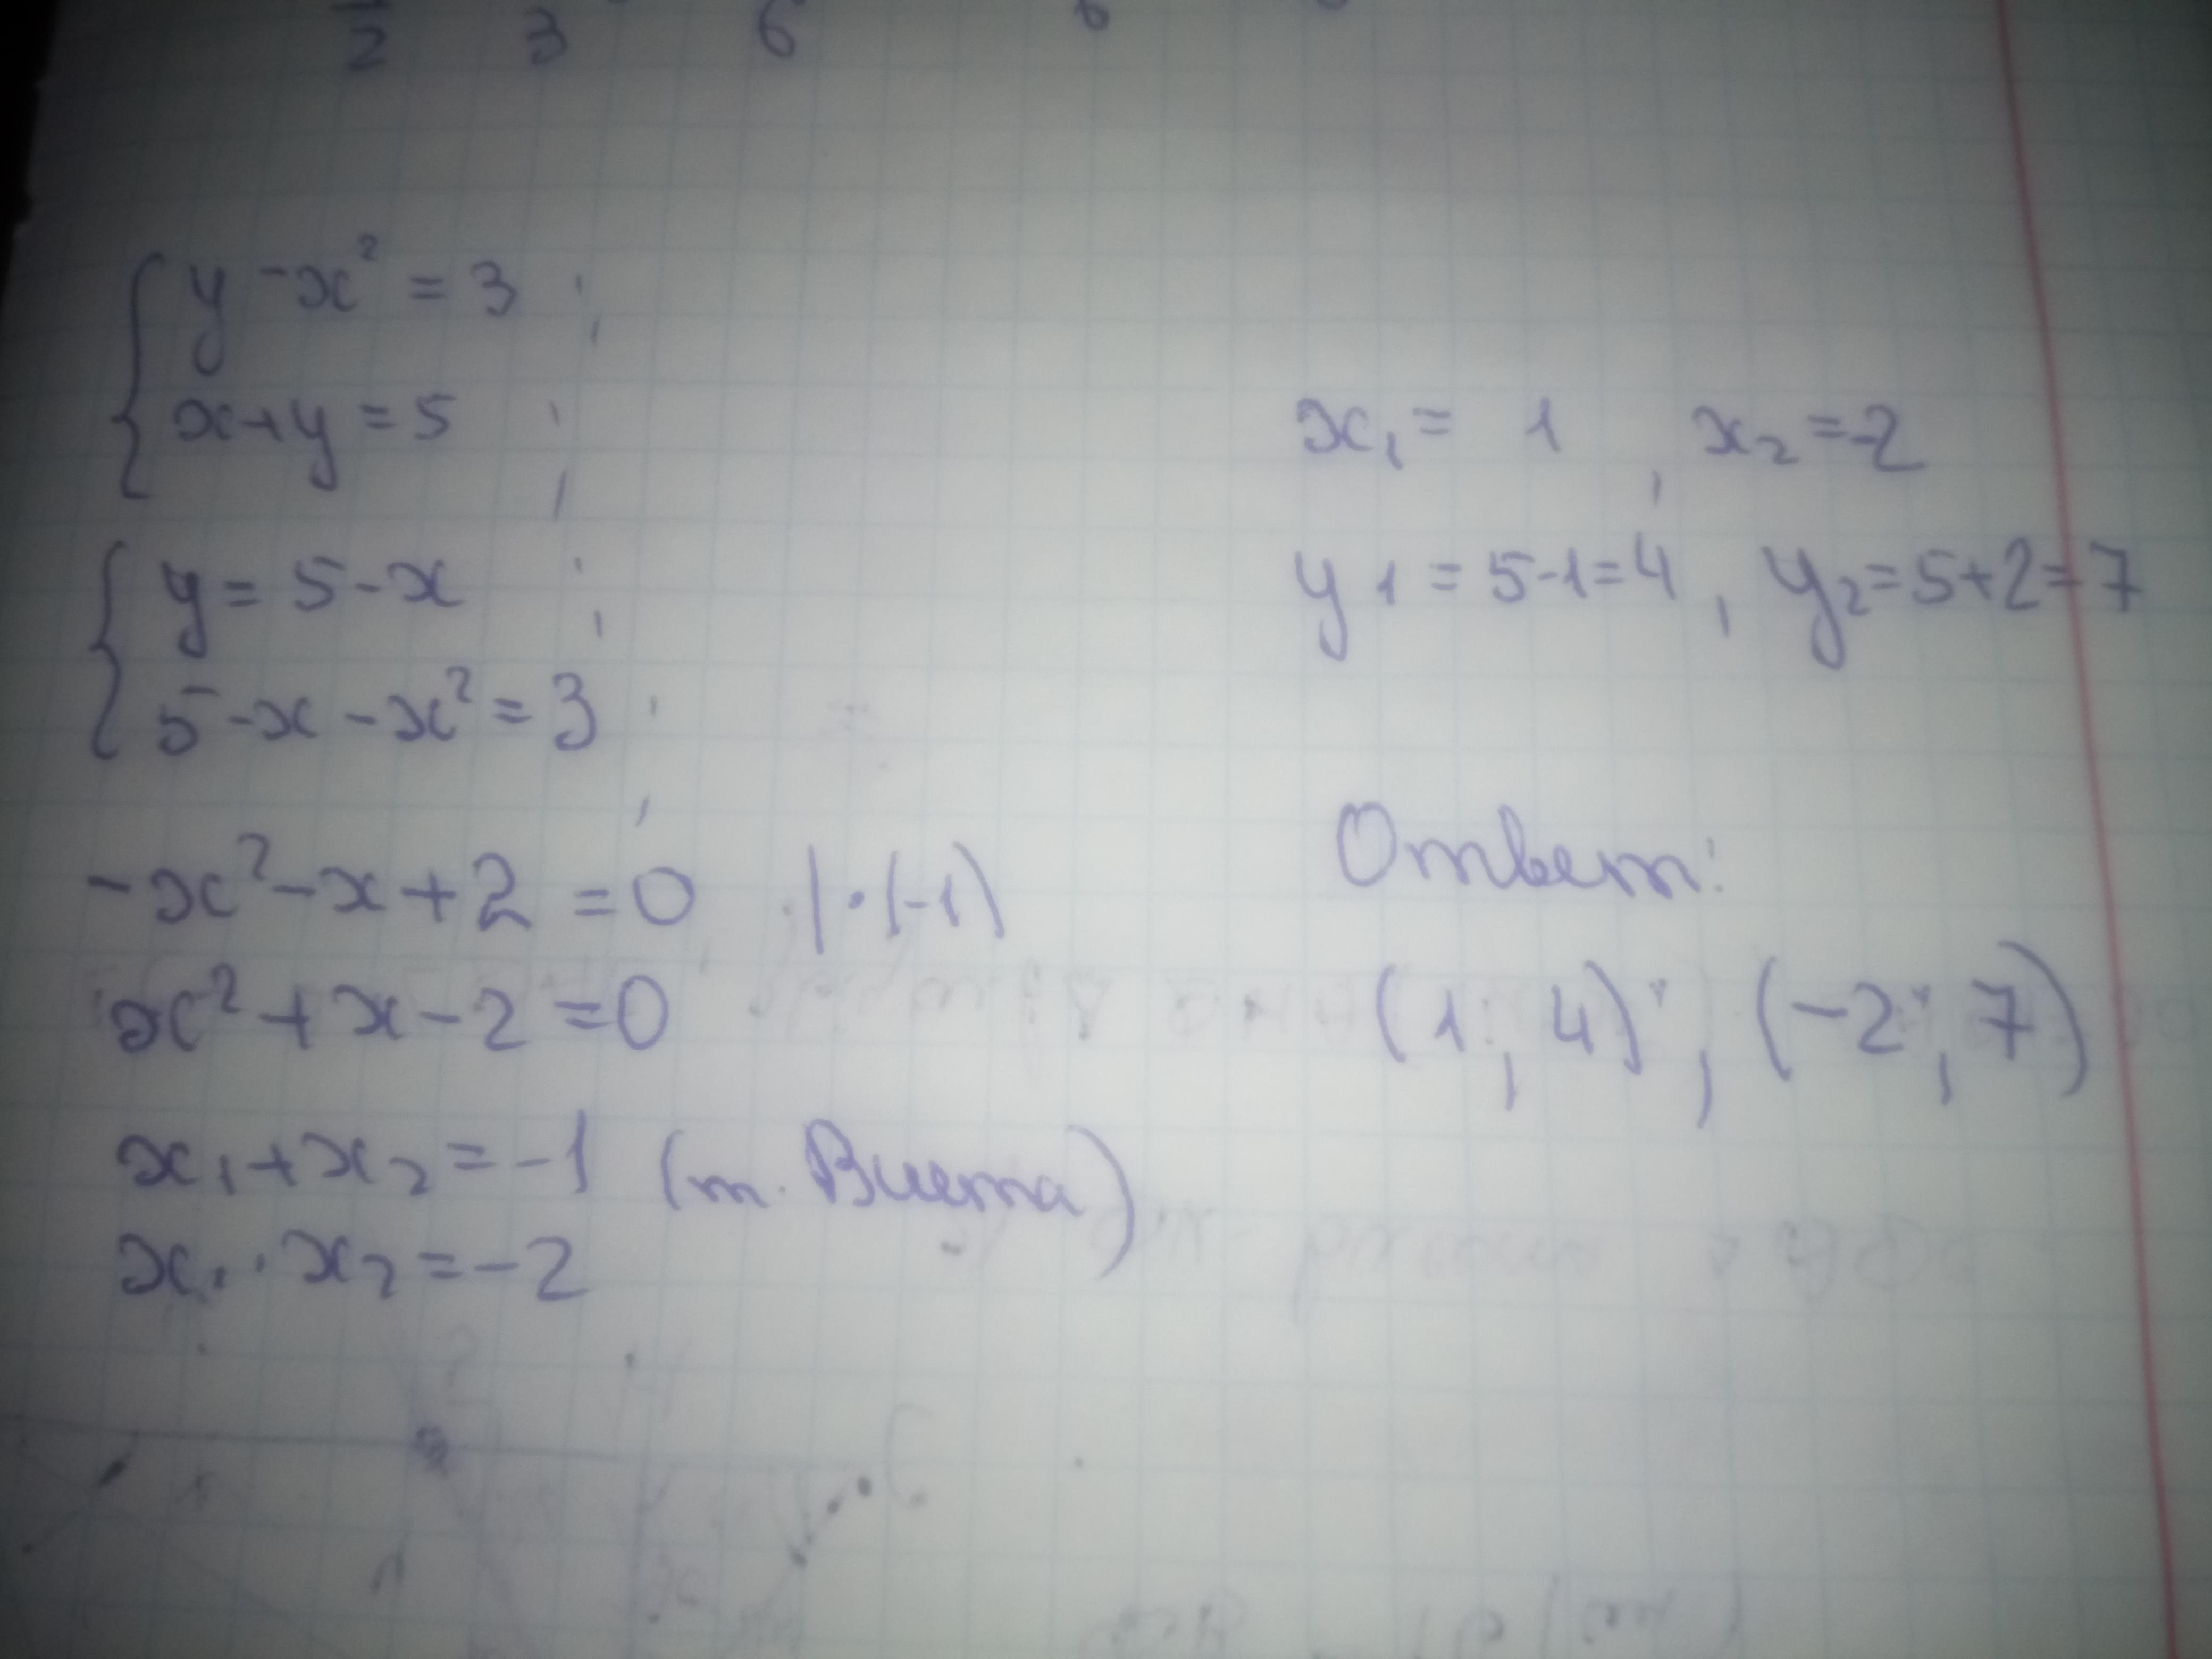 2 3 6
y - x² = 3 ;
x + y = 5 ;
y = 5 - x ;
5 - x - x² = 3 ;
-x² - x + 2 = 0 | · (-1)
x² + x - 2 = 0
x₁ + x₂ = -1 (т. Виета)
x₁ · x₂ = -2
x₁ = 1 , x₂ = -2
y1 = 5-1=4 , y₂ = 5+2=7
Ответ:
(1 ; 4) ; (-2 ; 7)